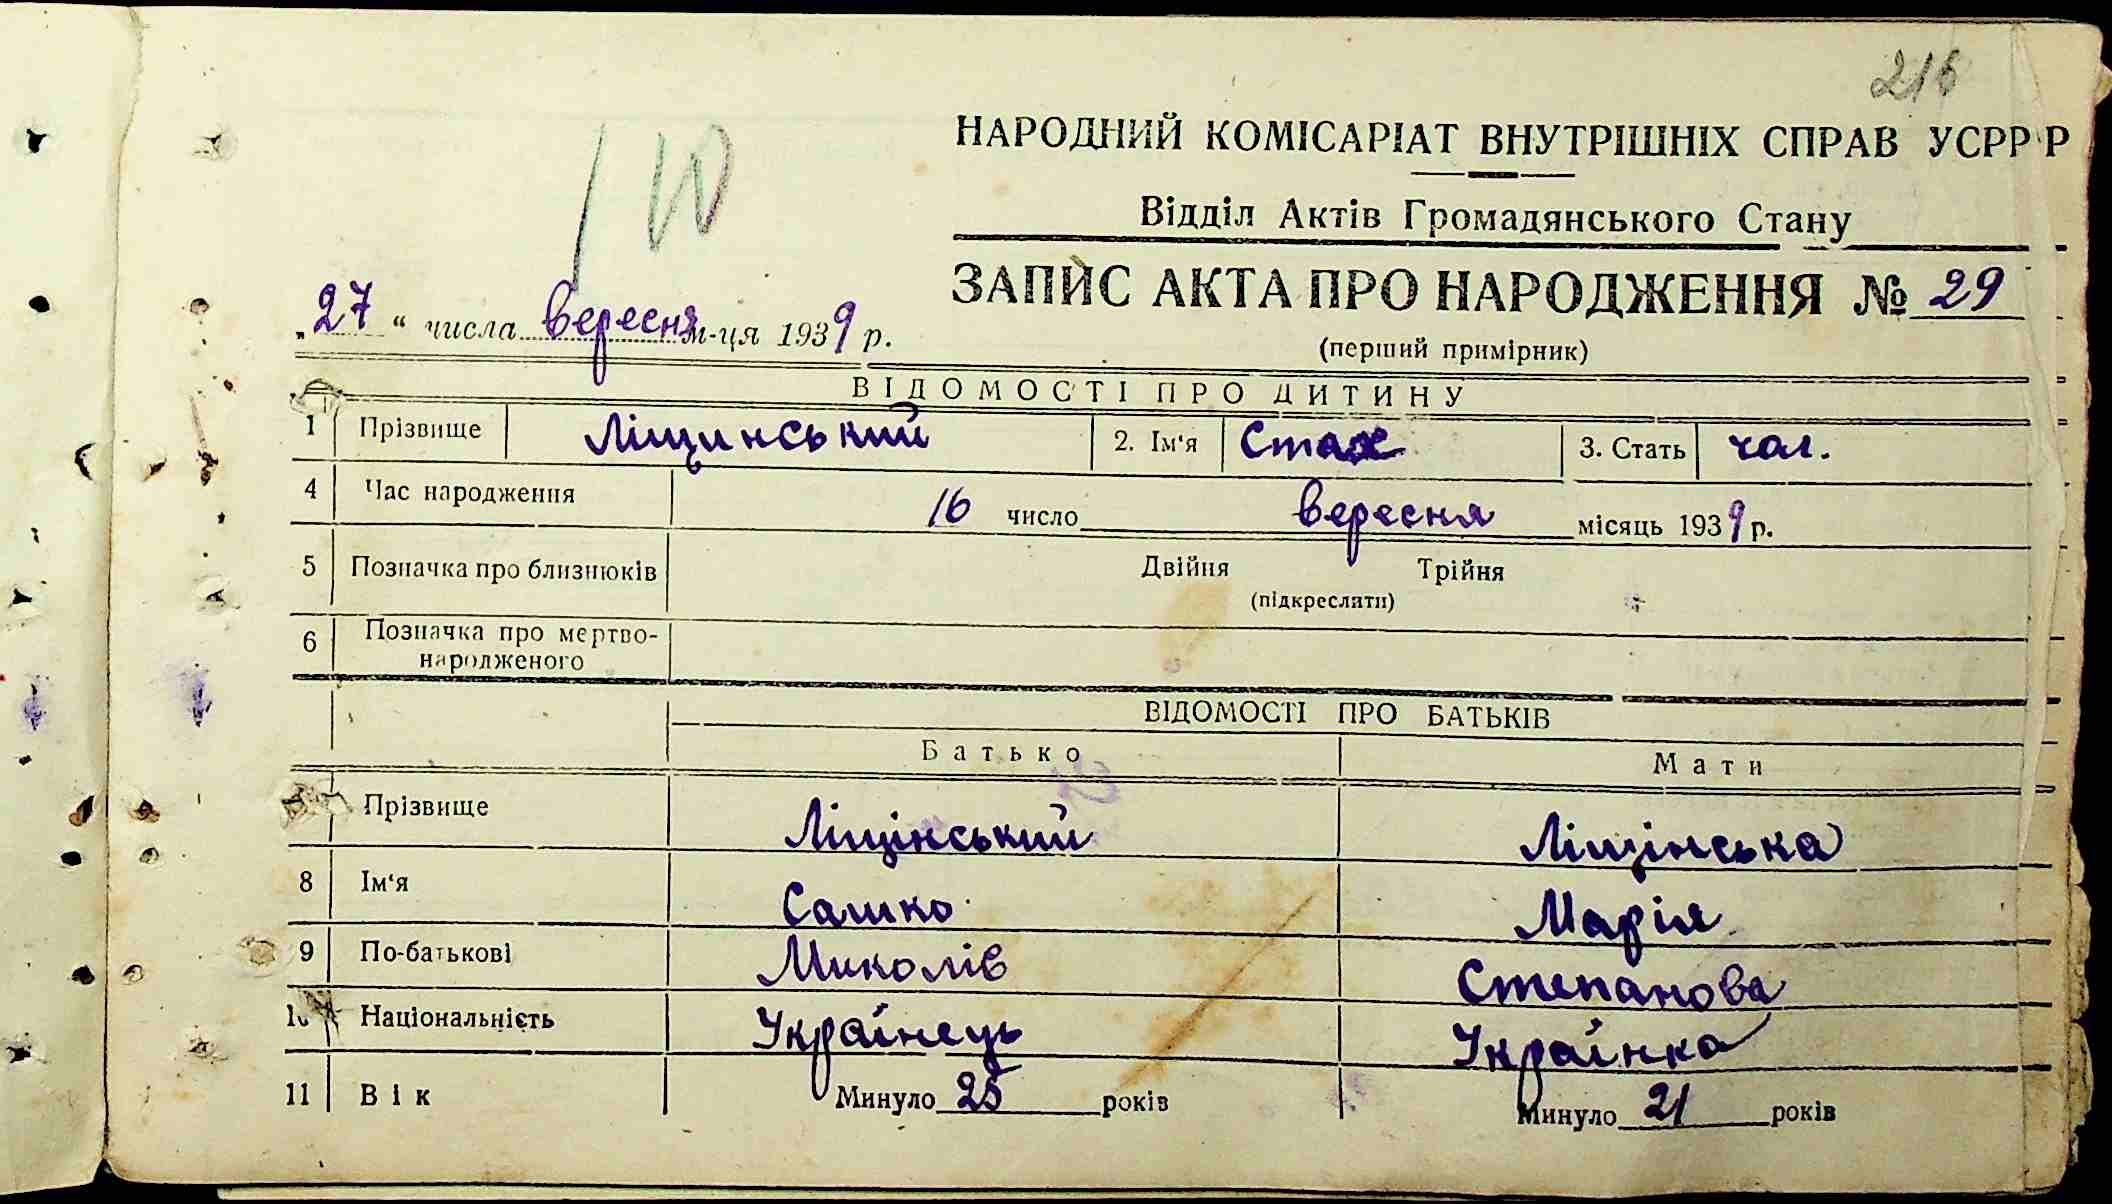 216
110
НАРОДНИЙ КОМІСАРІАТ ВНУТРІШНІХ СПРАВ УСРР Р
Відділ Актів Громадянського Стану
ЗАПИС АКТА ПРО НАРОДЖЕННЯ № 29
„27“ числа вересня м-ця 1939 р.
(перший примірник)
ВІДОМОСТІ ПРО ДИТИНУ
1 Прізвище Ліщинський 2. Ім'я Стах 3. Стать чол.
4 Час народження 16 число вересня місяць 1939 р.
5 Позначка про близнюків Двійня Трійня
(підкреслити)
6 Позначка про мертво-
народженого
ВІДОМОСТІ ПРО БАТЬКІВ
Батько Мати
Прізвище Ліщінський Ліщінська
8 Ім'я Сашко Марія
9 По-батькові Миколів Степанова
10 Національність Українець Українка
11 Вік Минуло 25 років Минуло 21 років